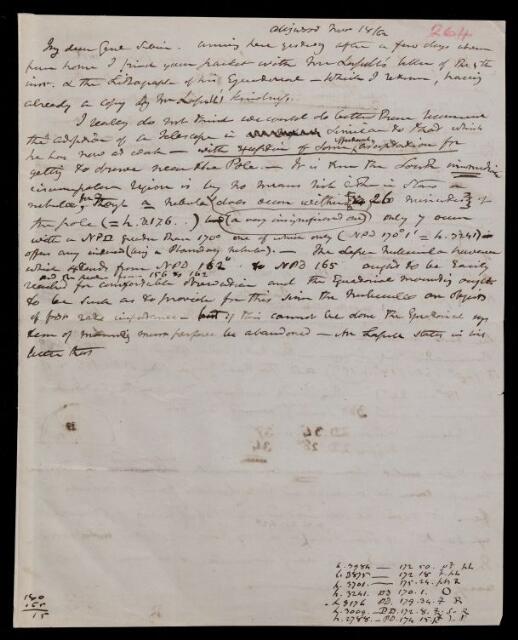 264
Collingwood Nov 18/62
My dear Genl Sabine. Arriving here yesterday after a few days absence
from home I find your packet with Mr Lassell's letter of the 5th
inst. & the Lithograph of his Equatorial – which I return, having
already a copy by Mr Lassell's kindness.
I really do not think we could do better than recommend
the adoption of a Telescope in similar to that which
he has now at work – with of some adaptation for
getting to observe near the Pole. – It is true the South immediate
circumpolar region is by no means rich either in stars or
nebulae, though a nebula does occur within 26 minutes of
the pole (= h. 3176 . .) (a very insignificant one) only 7 occur
with a NPD greater than 170° one of which only (NPD 170° 1' = h. 3241)
offers any interest (being a Planetary nebula). – The Lesser Nubecula however
which extends from NPD 162° to NPD 165° ought to be easily
and the greater from 156 to 162
reached for comfortable observation and the Equatorial mounting ought
to be such as to provide for this since the Nubeculae are objects
of first rate importance – but if this cannot be done the Equatorial sys
tem of mounting must perforce be abandoned – Mr Lassell states in his
letter that
h. 3984 — 172 50.
h. 3875 — 172 18
h. 3701. — 175. 24.
h. 3241. 170. 1. O
h. 3176 PD. 179. 34. R
h. 3004 — PD. 172. 31.
h. 2788. — PD. 174 15
180
165
15